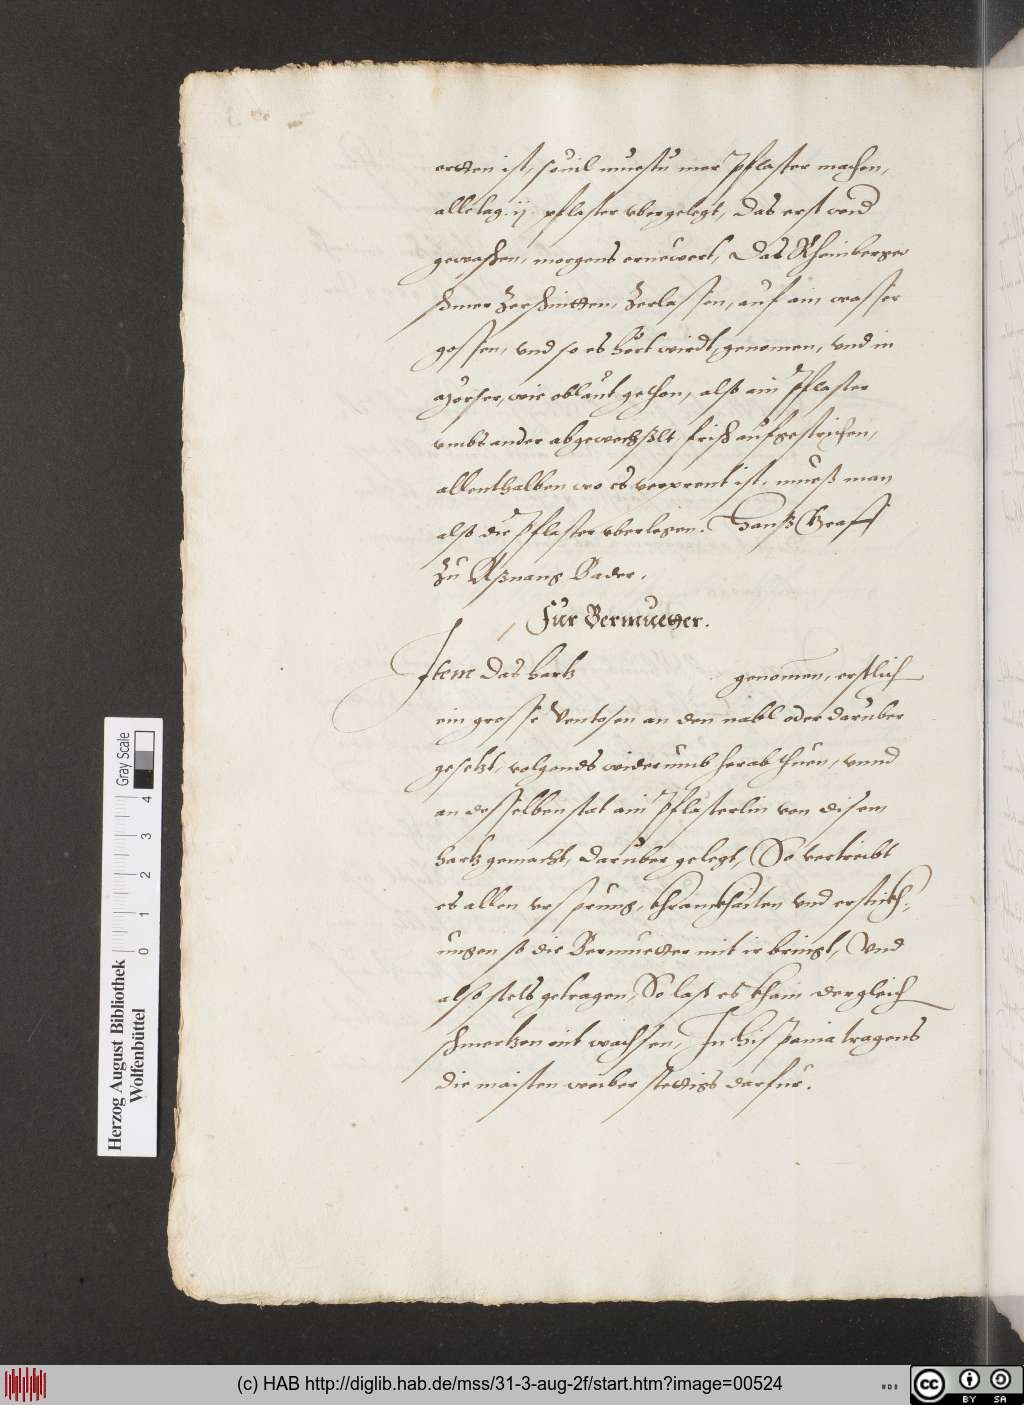 ertten ist, souil muestu mer Pflaster machen,
alle tag .ij. pflaster vbergelegt, Das erst wird
gewaschen, morgens ernewert, Das Rheinberger
schmer zerschnitten, zerlassen, auf ain wasser
gossen, vnd so es hört wirdt, genomen, vnd in
Mörser, wie oblaut gethon, also ain Pflaster
vmbs ander abgewechßlt, frisch aufgestrichen,
allenthalben wo es verprent ist, mueß man
also die Pflaster vberlegen. Hanß Graff
zu Bader.
Für Bermuetter.
Item das hartz genomen, erstlich
ein grosse Ventosen an den nabl oder darüber
gesetzt, volgends widerumb herab thuen, vnnd
an desselben stat ain Pflasterlin von disem
hartz gemacht, darüber gelegt, So vertreibt
es allen vrsprung, khranckhaiten vnd erstickh,
ungen so die Bermuetter mit ir bringt, Vnd
also stets getragen, So last es khain dergleich
schmertzen nit wachssen, In Hispania tragens
die maisten weiber stettigs darfür.
Herzog August Bibliothek
Wolfenbüttel
0 1 2 3 4
Gray Scale
(c) HAB http://diglib.hab.de/mss/31-3-aug-2f/start.htm?image=00524
cc BY SA